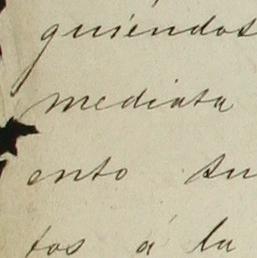 guiéndos
mediata
ento su
tos á la